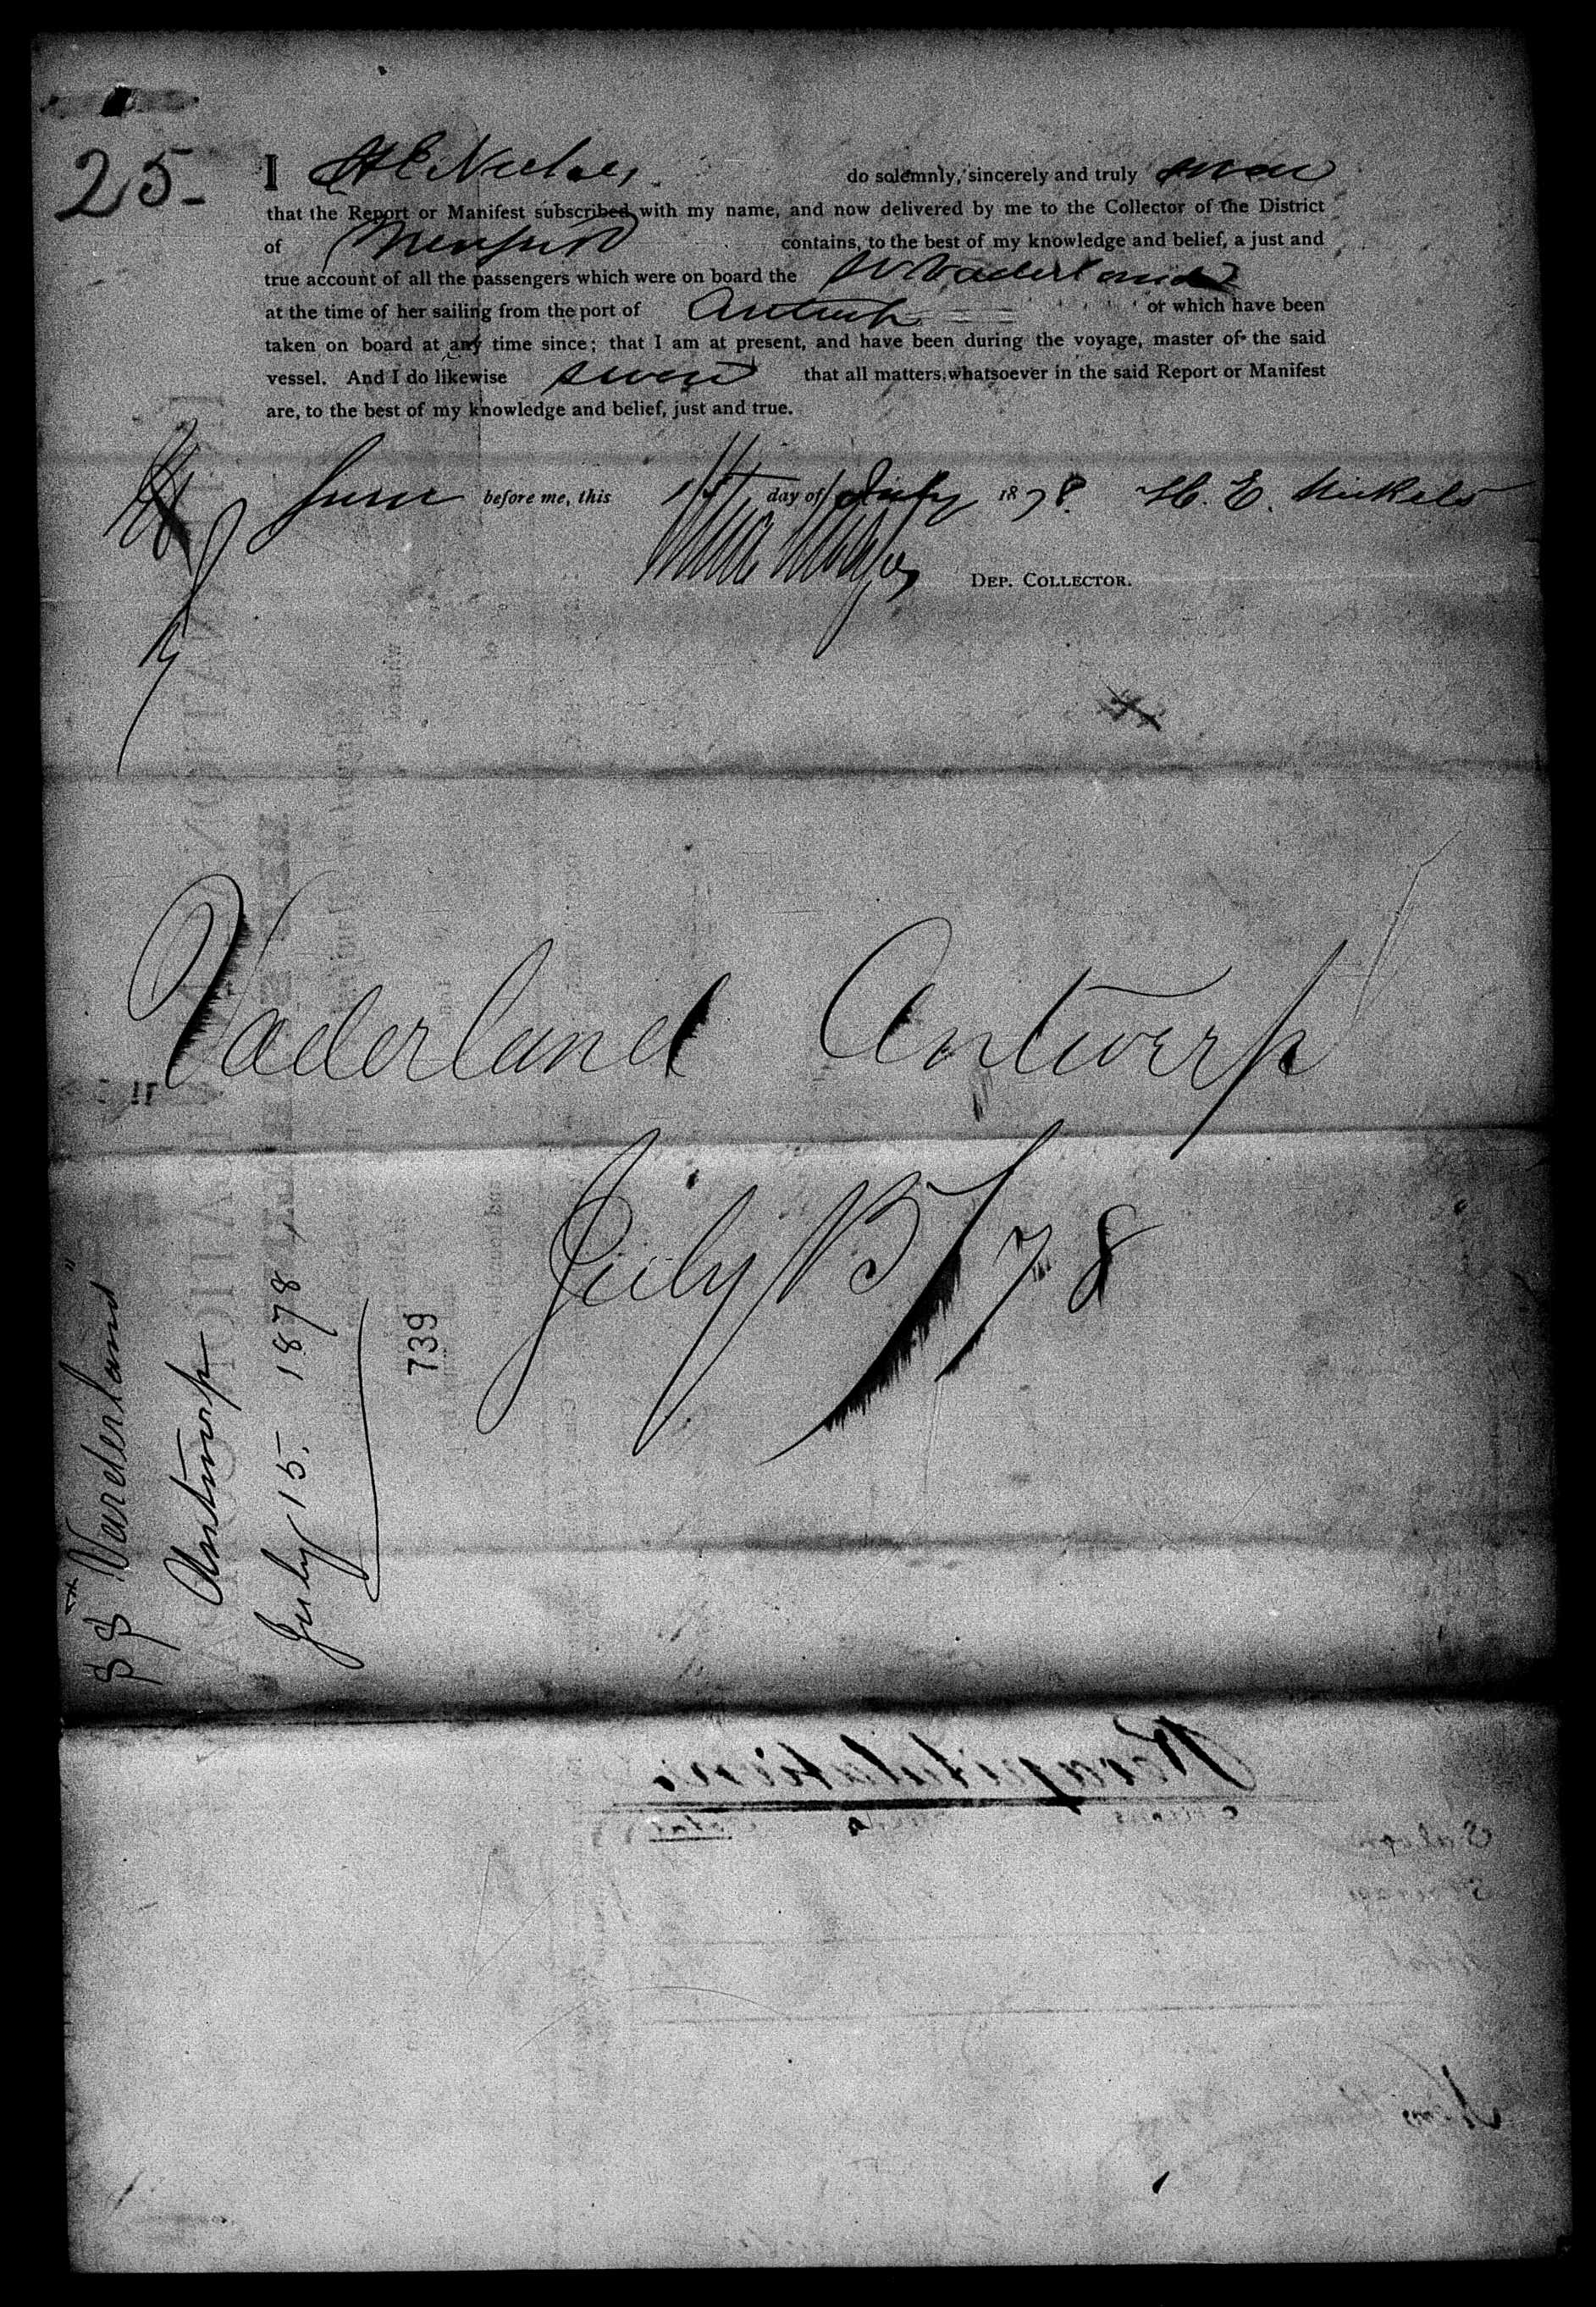 25-
I H E Nickels do solemnly, sincerely and truly swear
that the Report or Manifest subscribed with my name, and now delivered by me to the Collector of the District
of New York contains, to the best of my knowledge and belief, a just and
true account of all the passengers which were on board the SS Vaderland
at the time of her sailing from the port of Antwerp or which have been
taken on board at any time since; that I am at present, and have been during the voyage, master of the said
vessel. And I do likewise swear that all matters whatsoever in the said Report or Manifest
are, to the best of my knowledge and belief, just and true.
before me, this 15 day of July 1878. H. E. Nickels
DEP. COLLECTOR.
Vaderland Antwerp
July 15/78
SS "Vaderland"
Antwerp
July 15. 1878
739
Recapitulation.